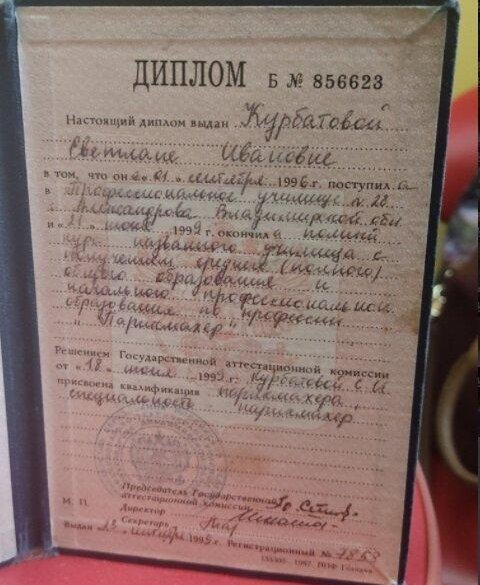 ДИПЛОМ Б № 856623
Настоящий диплом выдан Курбатовой
Светлане Ивановне
в том, что он а 01 сентября 1996 г. поступил а
в Профессиональное училище № 28
г. Александрова Владимирской обл
и 21 июня 1999 окончил а полный
курс названного училища с
получением среднего (полного)
общего образования и
начального профессиональной
образования по профессии
"Парикмахер"
Решением Государственной аттестационной комиссии
от "18" июня 1999 г. Курбатовой С. И.
присвоена квалификация парикмахера,
специальность парикмахер
Председатель Государственной
аттестационной комиссии
М. П. Директор
Секретарь
Выдан сентября 1999 г. Регистрационный № 7863
1997